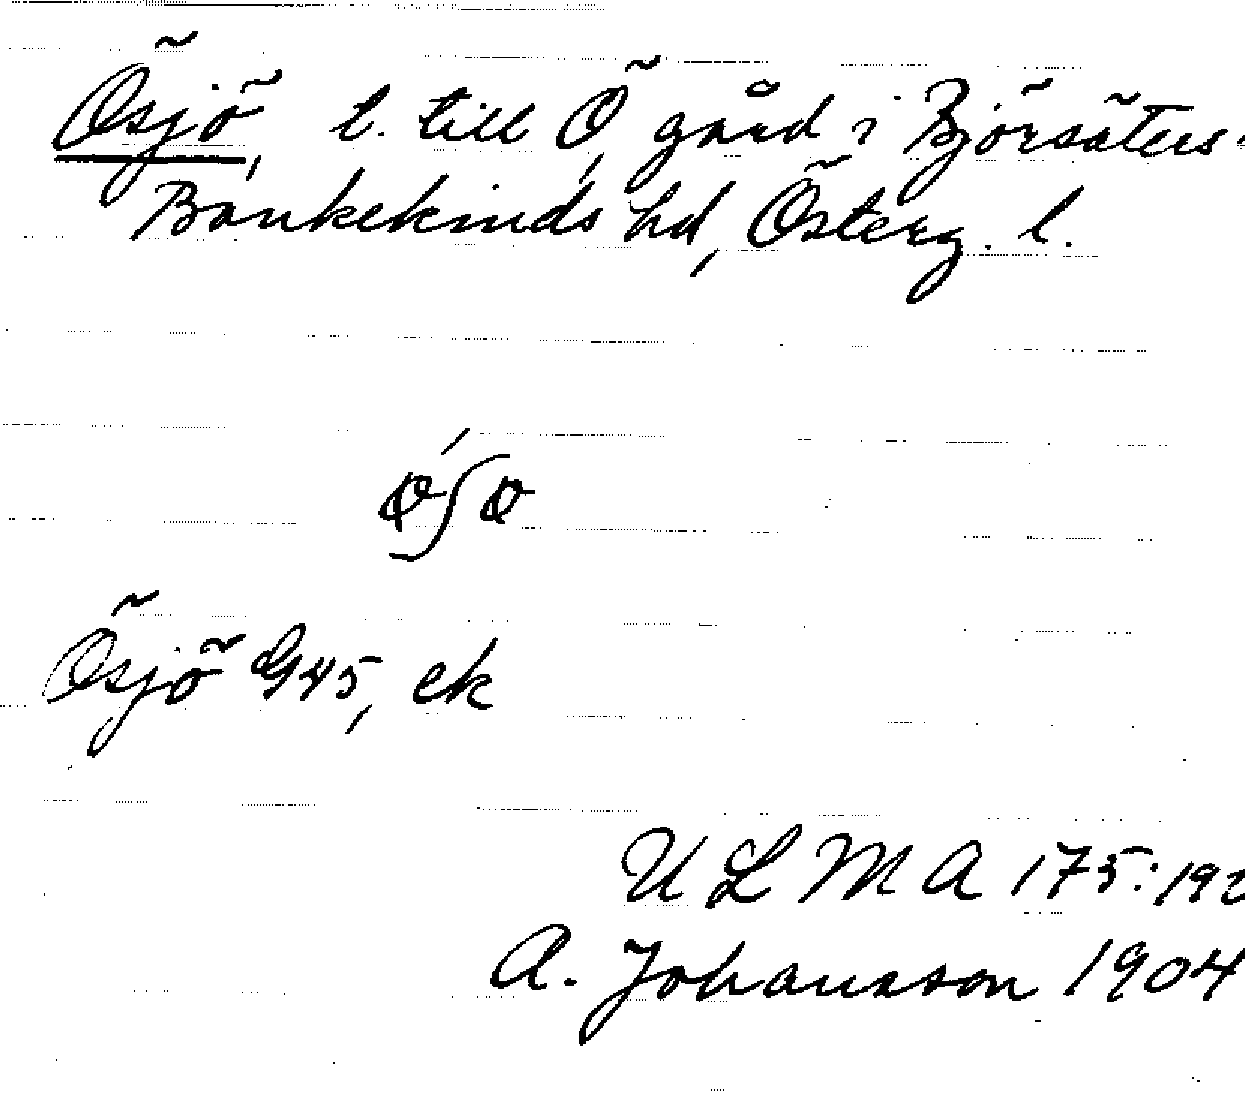 Ösjö, t. till Ö, gård i Björsäters
Bankekinds hd, Österg. l.
Ösjö G45, ek
ULMA 175:192
A. Johansson 1904